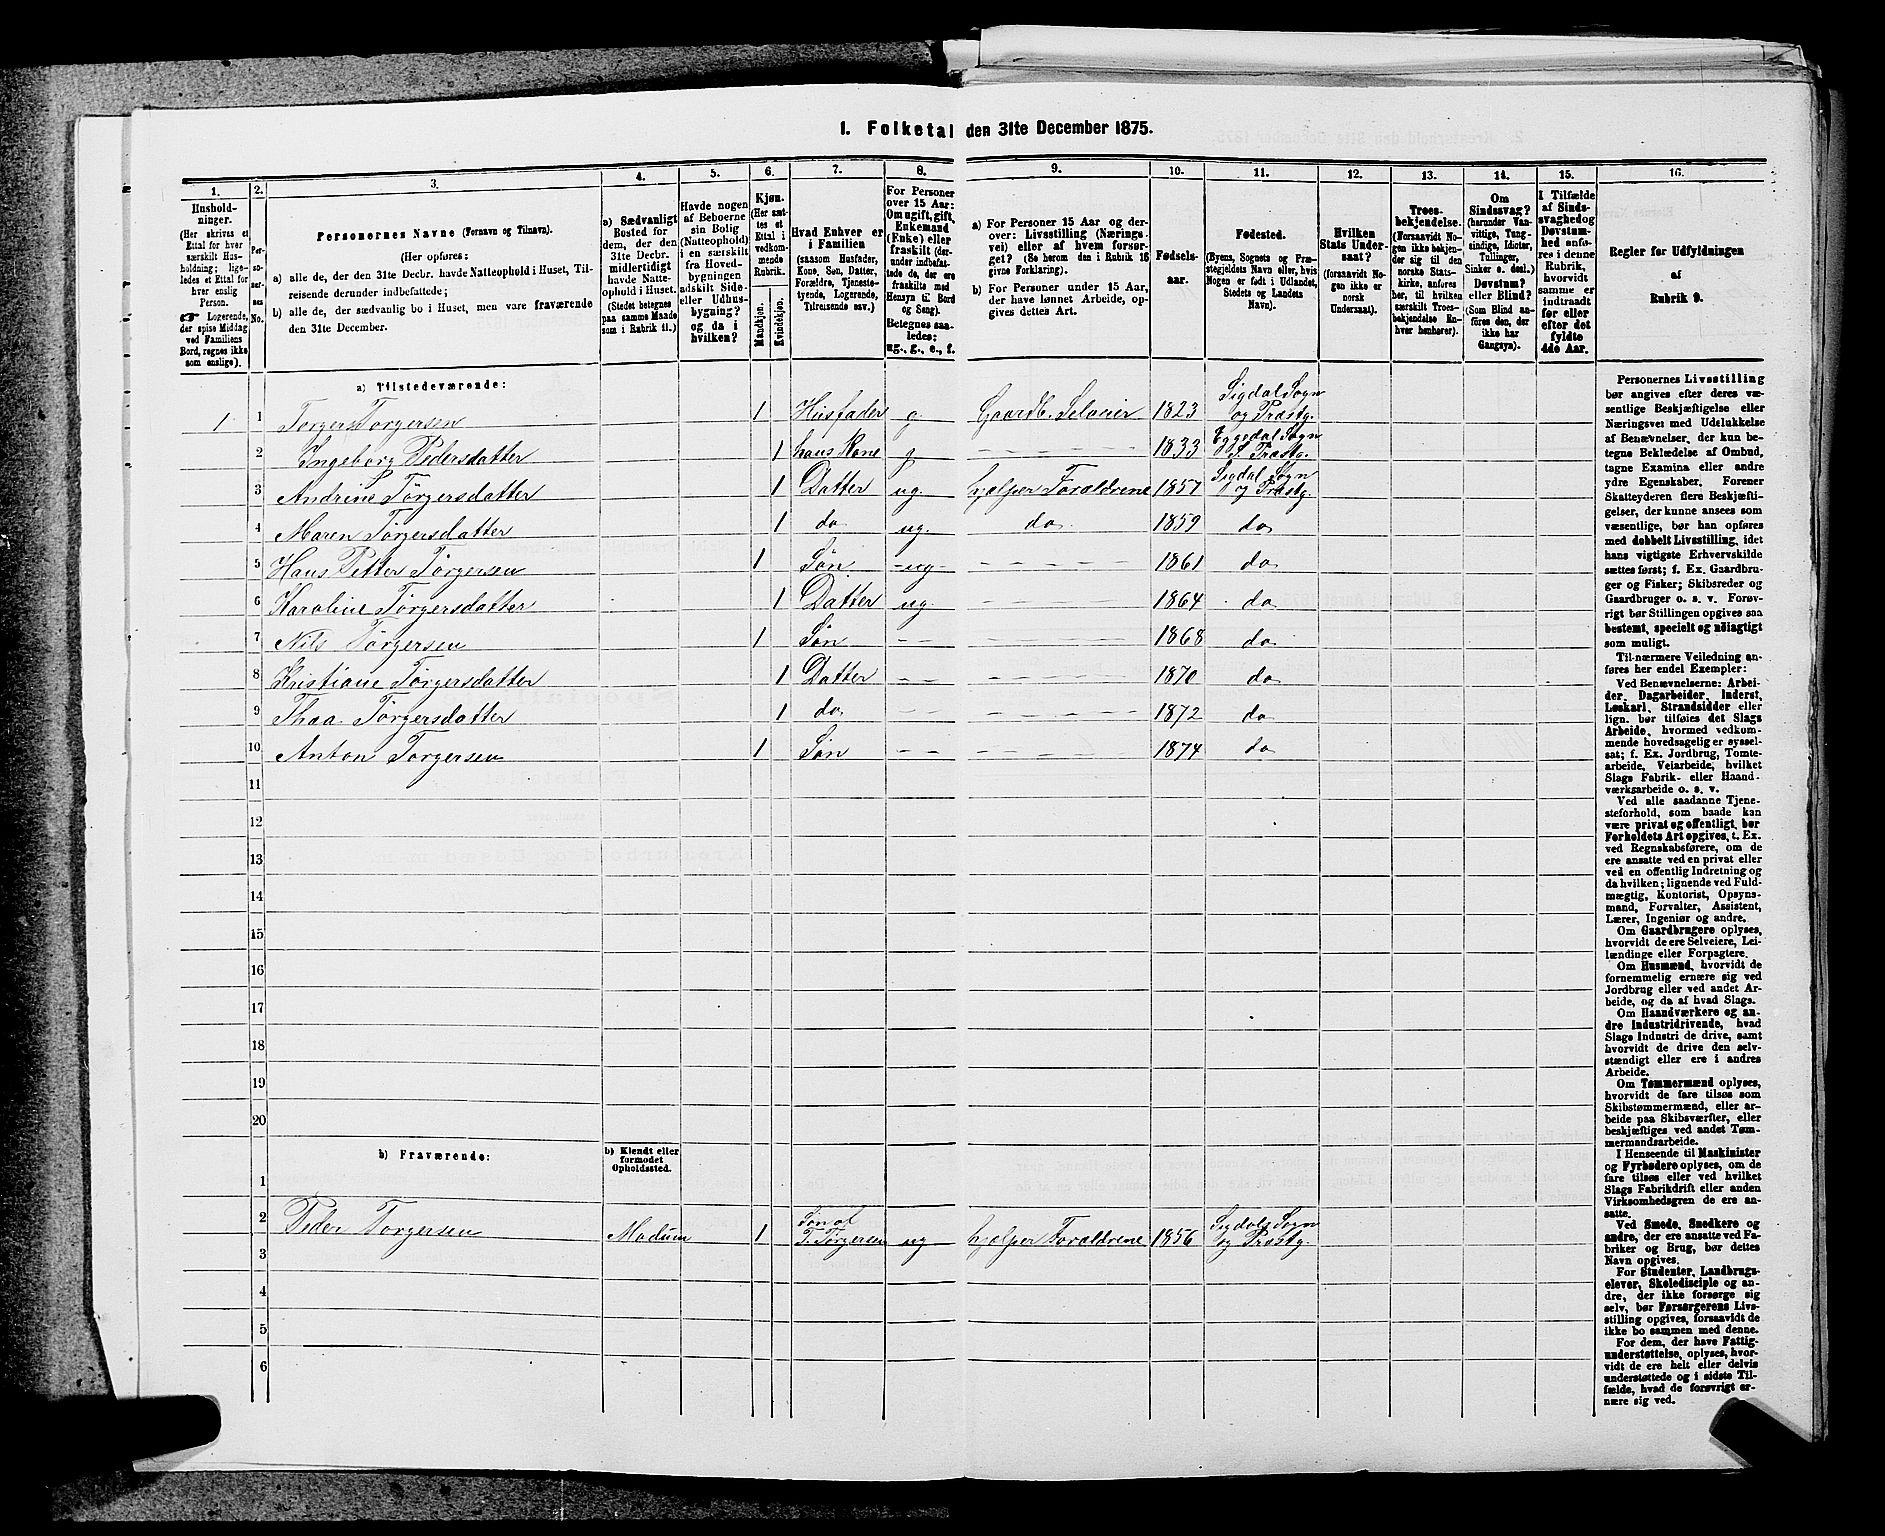 1. Folketal den 31te December 1875.
1.
2.
3.
4.
5.
6.
7.
8.
9.
10.
11.
12.
13.
14.
15.
16.
Hushold-
ninger.
(Her skrives et
Ettal for hver
særskilt Hus-
holdning; lige-
ledes et Ettal for
hver enslig
Person.
☞ Logerende,
der spise Middag
ved Familiens
Bord, regnes ikke
som enslige).
Per-
so-
ner-
nes
No.
Personernes Navne (Fornavn og Tilnavn).
(Her opføres:
a) alle de, der den 31te Decbr. havde Natteophold i Huset, Til-
reisende derunder indbefattede;
b) alle de, der sædvanlig bo i Huset, men vare fraværende
den 31te December.
a) Sædvanligt
Bosted for
dem, der den
31te Decbr.
midlertidigt
havde Natte-
ophold i Huset.
(Stedet betegnes
paa samme Maade
som i Rubrik 11.)
Havde nogen
af Beboerne
sin Bolig
(Natteophold)
i en særskilt
fra Hoved-
bygningen
adskilt Side-
eller Udhus-
bygning?
og da i
hvilken?
Kjøn.
(Her sæt-
tes et
Ettal i
vedkom-
mende
Rubrik.
Mandkjøn.
Kvindekjøn.
Hvad Enhver er
i Familien
(saasom Husfader,
Kone, Søn, Datter,
Forældre, Tjeneste-
tyende, Logerende,
Tilreisende osv.)
For Personer
over 15 Aar:
Om ugift, gift,
Enkemand
(Enke) eller
fraskilt (der-
under indbefat-
tede de, der ere
fraskilte med
Hensyn til Bord
og Seng).
Betegnes saa-
ledes:
ug., g., e., f.
a) For Personer 15 Aar og der-
over: Livsstilling (Nærings-
vei) eller af hvem forsør-
get? (Se herom den i Rubrik 16
givne Forklaring).
b) For Personer under 15 Aar,
der have lønnet Arbeide, op-
gives dettes Art.
Fødsels-
aar.
Fødested.
(Byens, Sognets og Præ-
stegjeldets Navn eller, hvis
Nogen er født i Udlandet,
Stedets og Landets
Navn).
Hvilken
Stats Under-
saat?
(forsaavidt No-
gen ikke er
norsk
Undersaat).
Troes-
bekjendelse.
(Forsaavidt No-
gen ikke bekjen-
der sig til den
norske Stats-
kirke, anføres
her, til hvilken
særskilt Troes-
bekjendelse En-
hver henhører).
Om
Sindssvag?
(herunder Van-
vittige, Tung-
sindige, Idioter,
Tullinger,
Sinker o. desl.)
Døvstum?
eller Blind?
(Som Blind an-
føres den, der
ikke har
Gangsyn).
I Tilfælde
af Sinds-
svaghed og
Døvstum-
hed anfø-
res i denne
Rubrik,
hvorvidt
samme er
indtraadt
før eller
efter det
fyldte
4de Aar.
Regler for Udfyldningen
af
Rubrik 9.
a) Tilstedeværende:
1 1 Torger Torgersen 1 Husfader g. Gaardb. Seleier 1823 Sigdal Sogn og Præstg.
2 Ingeborg Pedersdatter 1 hans Kone g — — — 1833 Eggedal Sogn S. Præstg.
3 Andrine Torgersdatter 1 Datter ug. hjælper Forældrene 1857 Sigdal Sogn og Præstg.
4 Maren Torgersdatter 1 do ug. do. 1859 do
5 Hans Petter Torgersen 1 Søn -ug- — — — 1861 do
6 Karoline Torgersdatter 1 Datter ug. — — — 1864 do
7 Nils Torgersen 1 Søn — — — — 1868 do
8 Kristiane Torgersdatter 1 Datter — — — — 1870 do
9 Thea Torgersdatter 1 do — — — — 1872 do
10 Anton Torgersen 1 Søn — — — — 1874 do
11
12
13
14
15
16
17
18
19
20
b) Fraværende:
b) Kjendt eller
formodet
Opholdssted.
1
2 Peder Torgersen Modum 1 Søn af T. Torgersen ug hjælper Forældrene 1856 Sigdals Sogn og Præstg.
3
4
5
6
Personernes Livsstilling
bør angives efter deres væ-
sentlige Beskjæftigelse eller
Næringsvei med Udelukkelse
af Benævnelser, der kun be-
tegne Beklædelse af Ombud,
tagne Examina eller andre
ydre Egenskaber. Forener
Skatteyderen flere Beskjæfti-
gelser, der kunne ansees som
væsentlige, bør han opføres
med dobbelt Livsstilling, idet
hans vigtigste Erhvervskilde
sættes først; f. Ex. Gaardbru-
ger og Fisker; Skibsreder og
Gaardbruger o. s. v. Forøv-
rigt bør Stillingen opgives saa
bestemt, specielt og nöiagtigt
som muligt.
Til nærmere Veiledning an-
føres her endel Exempler:
Ved Benævnelserne: Arbei-
der, Dagarbeider, Inderst,
Løskarl, Strandsidder eller
lign. bør tilføies det Slags
Arbeide, hvormed vedkom-
mende hovedsagelig er syssel-
sat; f. Ex. Jordbrug, Tomte-
arbeide, Veiarbeide, hvilket
Slags Fabrik- eller Haand-
værksarbeide o. s. v.
Ved alle saadanne Tjene-
steforhold, som baade kan
være privat og offentligt, bør
Forholdets Art opgives, t. Ex.
ved Regnskabsførere, om de
ere ansatte ved en privat eller
ved en offentlig Indretning og
da hvilken; lignende ved Fuld-
mægtig, Kontorist, Opsyns-
mand, Forvalter, Assistent,
Lærer, Ingeniør og andre.
Om Gaardbrugere oplyses,
hvorvidt de ere Selveiere, Lei-
lændinge eller Forpagtere.
Om Husmænd, hvorvidt de
fornemmelig ernære sig ved
Jordbrug eller ved andet Ar-
beide, og da af hvad Slags.
Om Haandværkere og an-
dre Industridrivende, hvad
Slags Industri de drive, samt
hvorvidt de drive den selv-
stændigt eller ere i andres
Arbeide.
Om Tømmermænd oplyses,
hvorvidt de fare tilsøs som
Skibstømmermænd, eller ar-
beide paa Skibsværfter, eller
beskjæftiges ved andet Tøm-
mermandsarbeide.
I Henseende til Maskinister
og Fyrbødere oplyses, om de
fare tilsøs eller ved hvilket
Slags Fabrikdrift eller anden
Virksomhedsgren de ere an-
satte.
Ved Smede, Snedkere og
andre, der ere ansatte ved Fa-
briker og Brug, bør dettes
Navn opgives.
For Studenter, Landbrugs-
elever, Skoledisciple og an-
dre, der ikke forsørge sig
selv, bør Forsørgerens Livs-
stilling opgives, forsaavidt de
ikke bo sammen med denne.
For dem, der have Fattig-
understøttelse, oplyses, hvor-
vidt de ere helt eller delvis
understøttede og i sidste Til-
fælde, hvad de forøvrigt er-
nære sig ved.